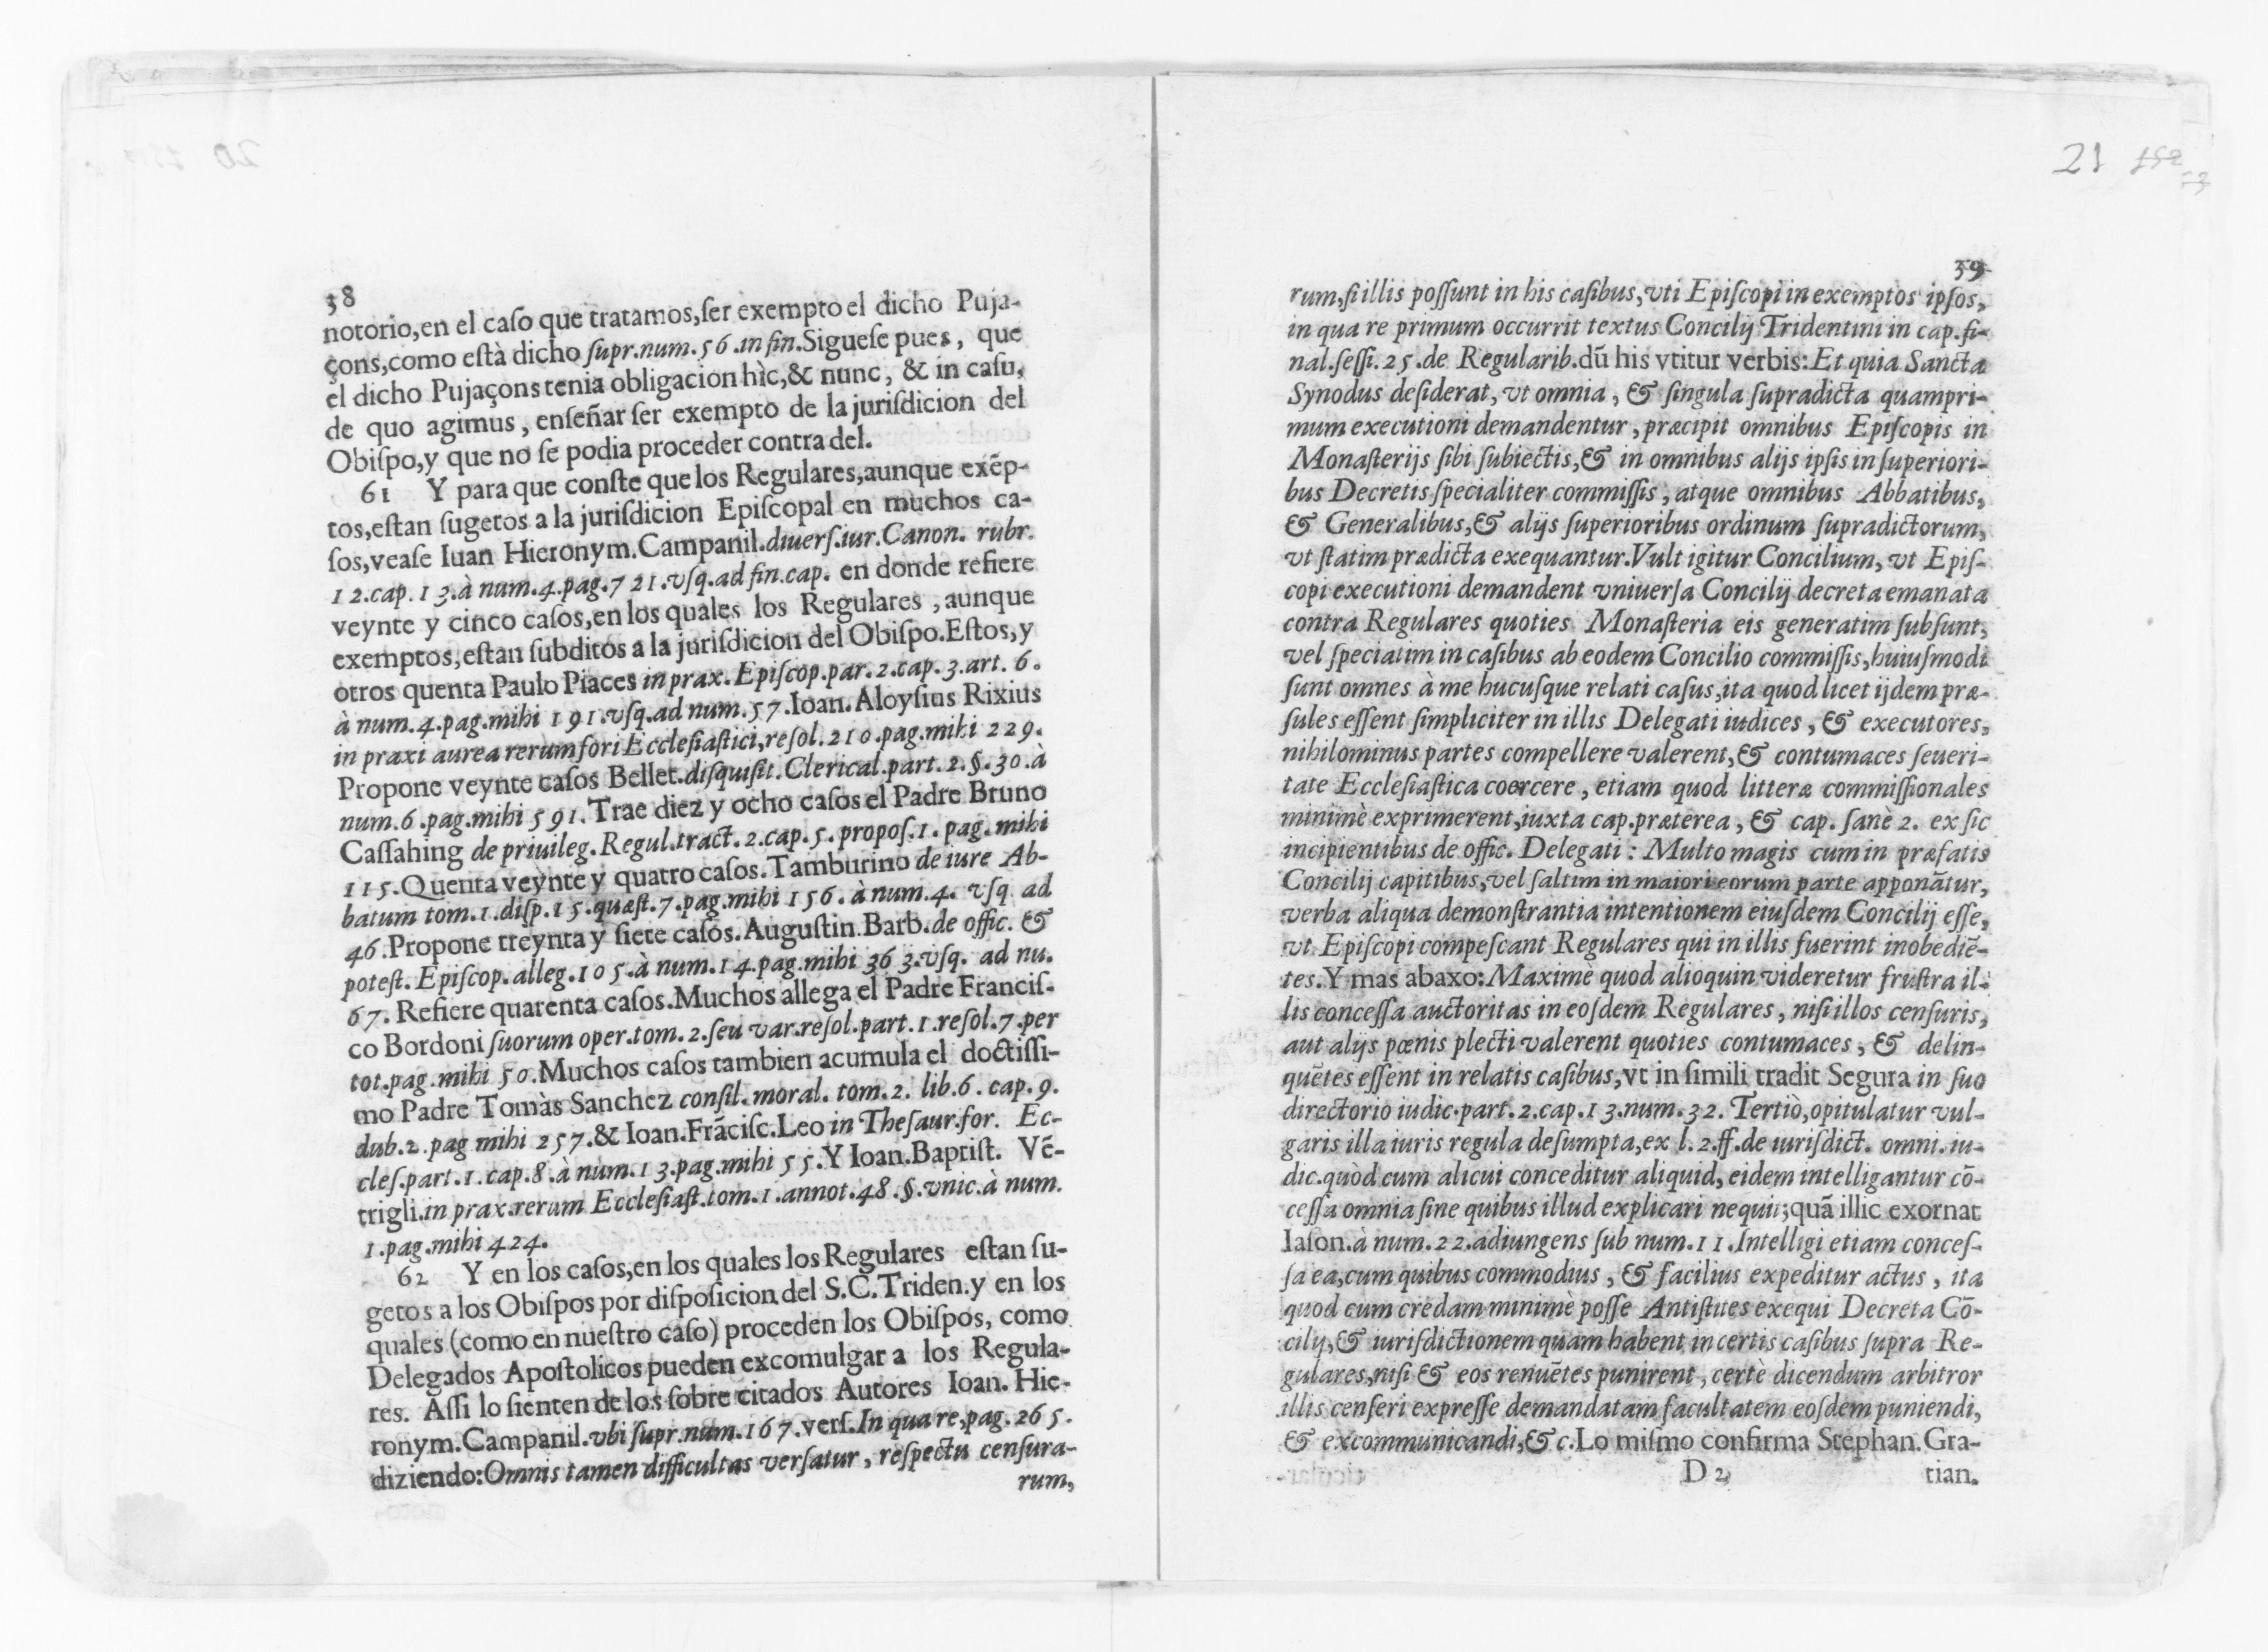 38
notorio,en el caſo que tratamos,ſer exempto el dicho Puja-
çons,como eſtà dicho ſupr.num.56.in fin.Sigueſe pues, que
el dicho Pujaçons tenia obligacion hìc,& nunc, & in caſu,
de quo agimus, enſeñar ſer exempto de la juriſdicion del
Obiſpo,y que no ſe podia proceder contra del.
61 Y para que conſte que los Regulares,aunque exẽp-
tos,eſtan ſugetos a la juriſdicion Epiſcopal en muchos ca-
ſos,veaſe Iuan Hieronym.Campanil.diuerſ.iur.Canon. rubr.
12.cap.13.à num.4.pag.721.vſq.ad fin.cap. en donde refiere
veynte y cinco caſos,en los quales los Regulares, aunque
exemptos,eſtan ſubditos a la juriſdicion del Obiſpo.Eſtos,y
otros quenta Paulo Piaces in prax.Epiſcop.par.2.cap.3.art.6.
à num.4.pag.mihi 191.vſq.ad num.57.Ioan.Aloyſius Rixius
in praxi aurea rerum fori Eccleſiaſtici,reſol.210.pag.mihi 229.
Propone veynte caſos Bellet.diſquiſit.Clerical.part.2.§.30.à
num.6.pag.mihi 591.Trae diez y ocho caſos el Padre Bruno
Caſſahing de priuileg.Regul.tract.2.cap.5.propoſ.1.pag.mihi
115.Quenta veynte y quatro caſos.Tamburino de iure Ab-
batum tom.1.diſp.15.quæſt.7.pag.mihi 156.à num.4. vſq ad
46.Propone treynta y ſiete caſos.Auguſtin.Barb.de offic. &
poteſt.Epiſcop.alleg.105.à num.14.pag.mihi 363.vſq. ad nu.
67. Refiere quarenta caſos.Muchos allega el Padre Franciſ-
co Bordoni ſuorum oper.tom.2.ſeu var.reſol.part.1.reſol.7.per
tot.pag.mihi 50.Muchos caſos tambien acumula el doctiſſi-
mo Padre Tomàs Sanchez conſil.moral. tom.2. lib.6. cap.9.
dub.2.pag mihi 257.& Ioan.Frãciſc.Leo in Theſaur.for. Ec-
cleſ.part.1.cap.8.à num.13.pag.mihi 55.Y Ioan.Baptiſt. Vẽ-
trigli.in prax.rerum Eccleſiaſt.tom.1.annot.48.§.vnic.à num.
1.pag.mihi 424.
62 Y en los caſos,en los quales los Regulares eſtan ſu-
getos a los Obiſpos por diſpoſicion del S.C.Triden.y en los
quales (como en nueſtro caſo) proceden los Obiſpos, como
Delegados Apoſtolicos pueden excomulgar a los Regula-
res. Aſſi lo ſienten de los ſobre citados Autores Ioan. Hie-
ronym.Campanil.vbi ſupr.num.167.verſ.In qua re,pag.265.
diziendo:Omnis tamen difficultas verſatur, reſpectu cenſura-
rum,
21 152
39
rum,ſi illis poſſunt in his caſibus,vti Epiſcopi in exemptos ipſos,
in qua re primum occurrit textus Concilij Tridentini in cap.fi-
nal.ſeſſi.25.de Regularib.dũ his vtitur verbis:Et quia Sancta
Synodus deſiderat, vt omnia, & ſingula ſupradicta quampri-
mum executioni demandentur, præcipit omnibus Epiſcopis in
Monaſterijs ſibi ſubiectis,& in omnibus alijs ipſis in ſuperiori-
bus Decretis ſpecialiter commiſſis, atque omnibus Abbatibus,
& Generalibus,& alijs ſuperioribus ordinum ſupradictorum,
vt ſtatim prædicta exequantur.Vult igitur Concilium, vt Epiſ-
copi executioni demandent vniuerſa Concilij decreta emanata
contra Regulares quoties Monaſteria eis generatim ſubſunt,
vel ſpeciatim in caſibus ab eodem Concilio commiſſis,huiuſmodi
ſunt omnes à me hucuſque relati caſus,ita quod licet ijdem præ-
ſules eſſent ſimpliciter in illis Delegati iudices, & executores,
nihilominus partes compellere valerent,& contumaces ſeueri-
tate Eccleſiaſtica coercere, etiam quod litteræ commiſſionales
minimè exprimerent,iuxta cap.præterea, & cap. ſanè 2. ex ſic
incipientibus de offic. Delegati: Multo magis cum in præfatis
Concilij capitibus,vel ſaltim in maiori eorum parte apponãtur,
verba aliqua demonſtrantia intentionem eiuſdem Concilij eſſe,
vt Epiſcopi compeſcant Regulares qui in illis fuerint inobediẽ-
tes.Y mas abaxo:Maximè quod alioquin videretur fruſtra il-
lis conceſſa auctoritas in eoſdem Regulares, niſi illos cenſuris,
aut alijs pœnis plecti valerent quoties contumaces, & delin-
quẽtes eſſent in relatis caſibus,vt in ſimili tradit Segura in ſuo
directorio iudic.part.2.cap.13.num.32. Tertiò,opitulatur vul-
garis illa iuris regula deſumpta,ex l.2.ff.de iuriſdict. omni.iu-
dic.quòd cum alicui conceditur aliquid, eidem intelligantur cõ-
ceſſa omnia ſine quibus illud explicari nequit;quã illic exornat
Iaſon.à num.22.adiungens ſub num.11.Intelligi etiam conceſ-
ſa ea,cum quibus commodius, & facilius expeditur actus, ita
quod cum credam minimè poſſe Antiſtites exequi Decreta Cõ-
cilij,& iuriſdictionem quam habent in certis caſibus ſupra Re-
gulares,niſi & eos renuẽtes punirent, certè dicendum arbitror
illis cenſeri expreſſe demandatam facultatem eoſdem puniendi,
& excommunicandi,& c.Lo miſmo confirma Stephan.Gra-
D 2 tian.